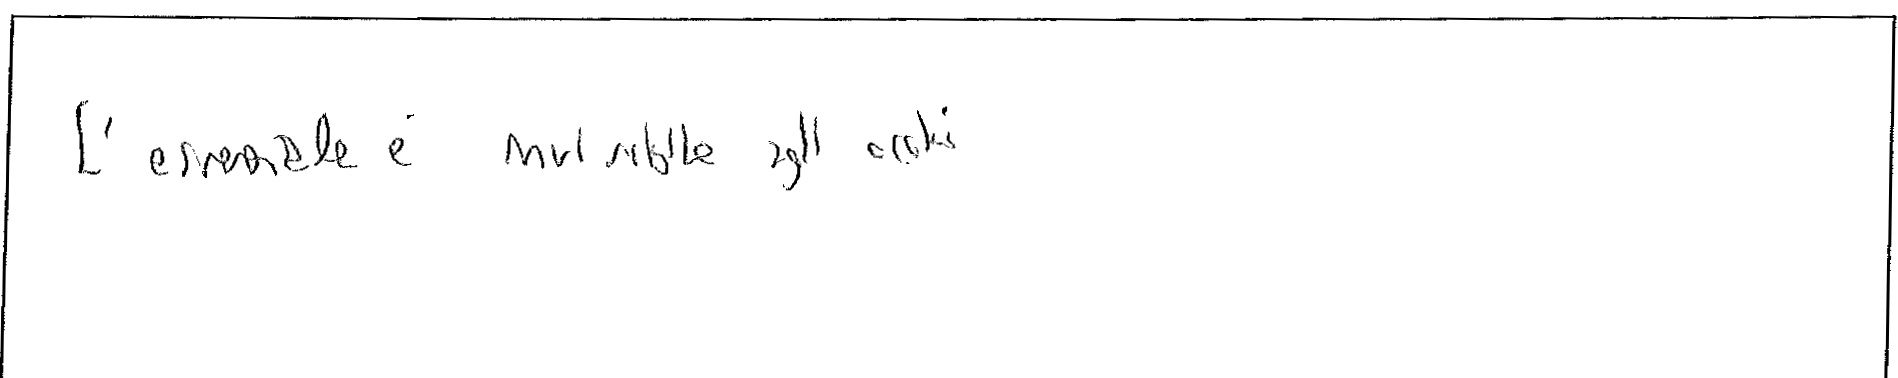 L'essenziale è invisibile agli occhi